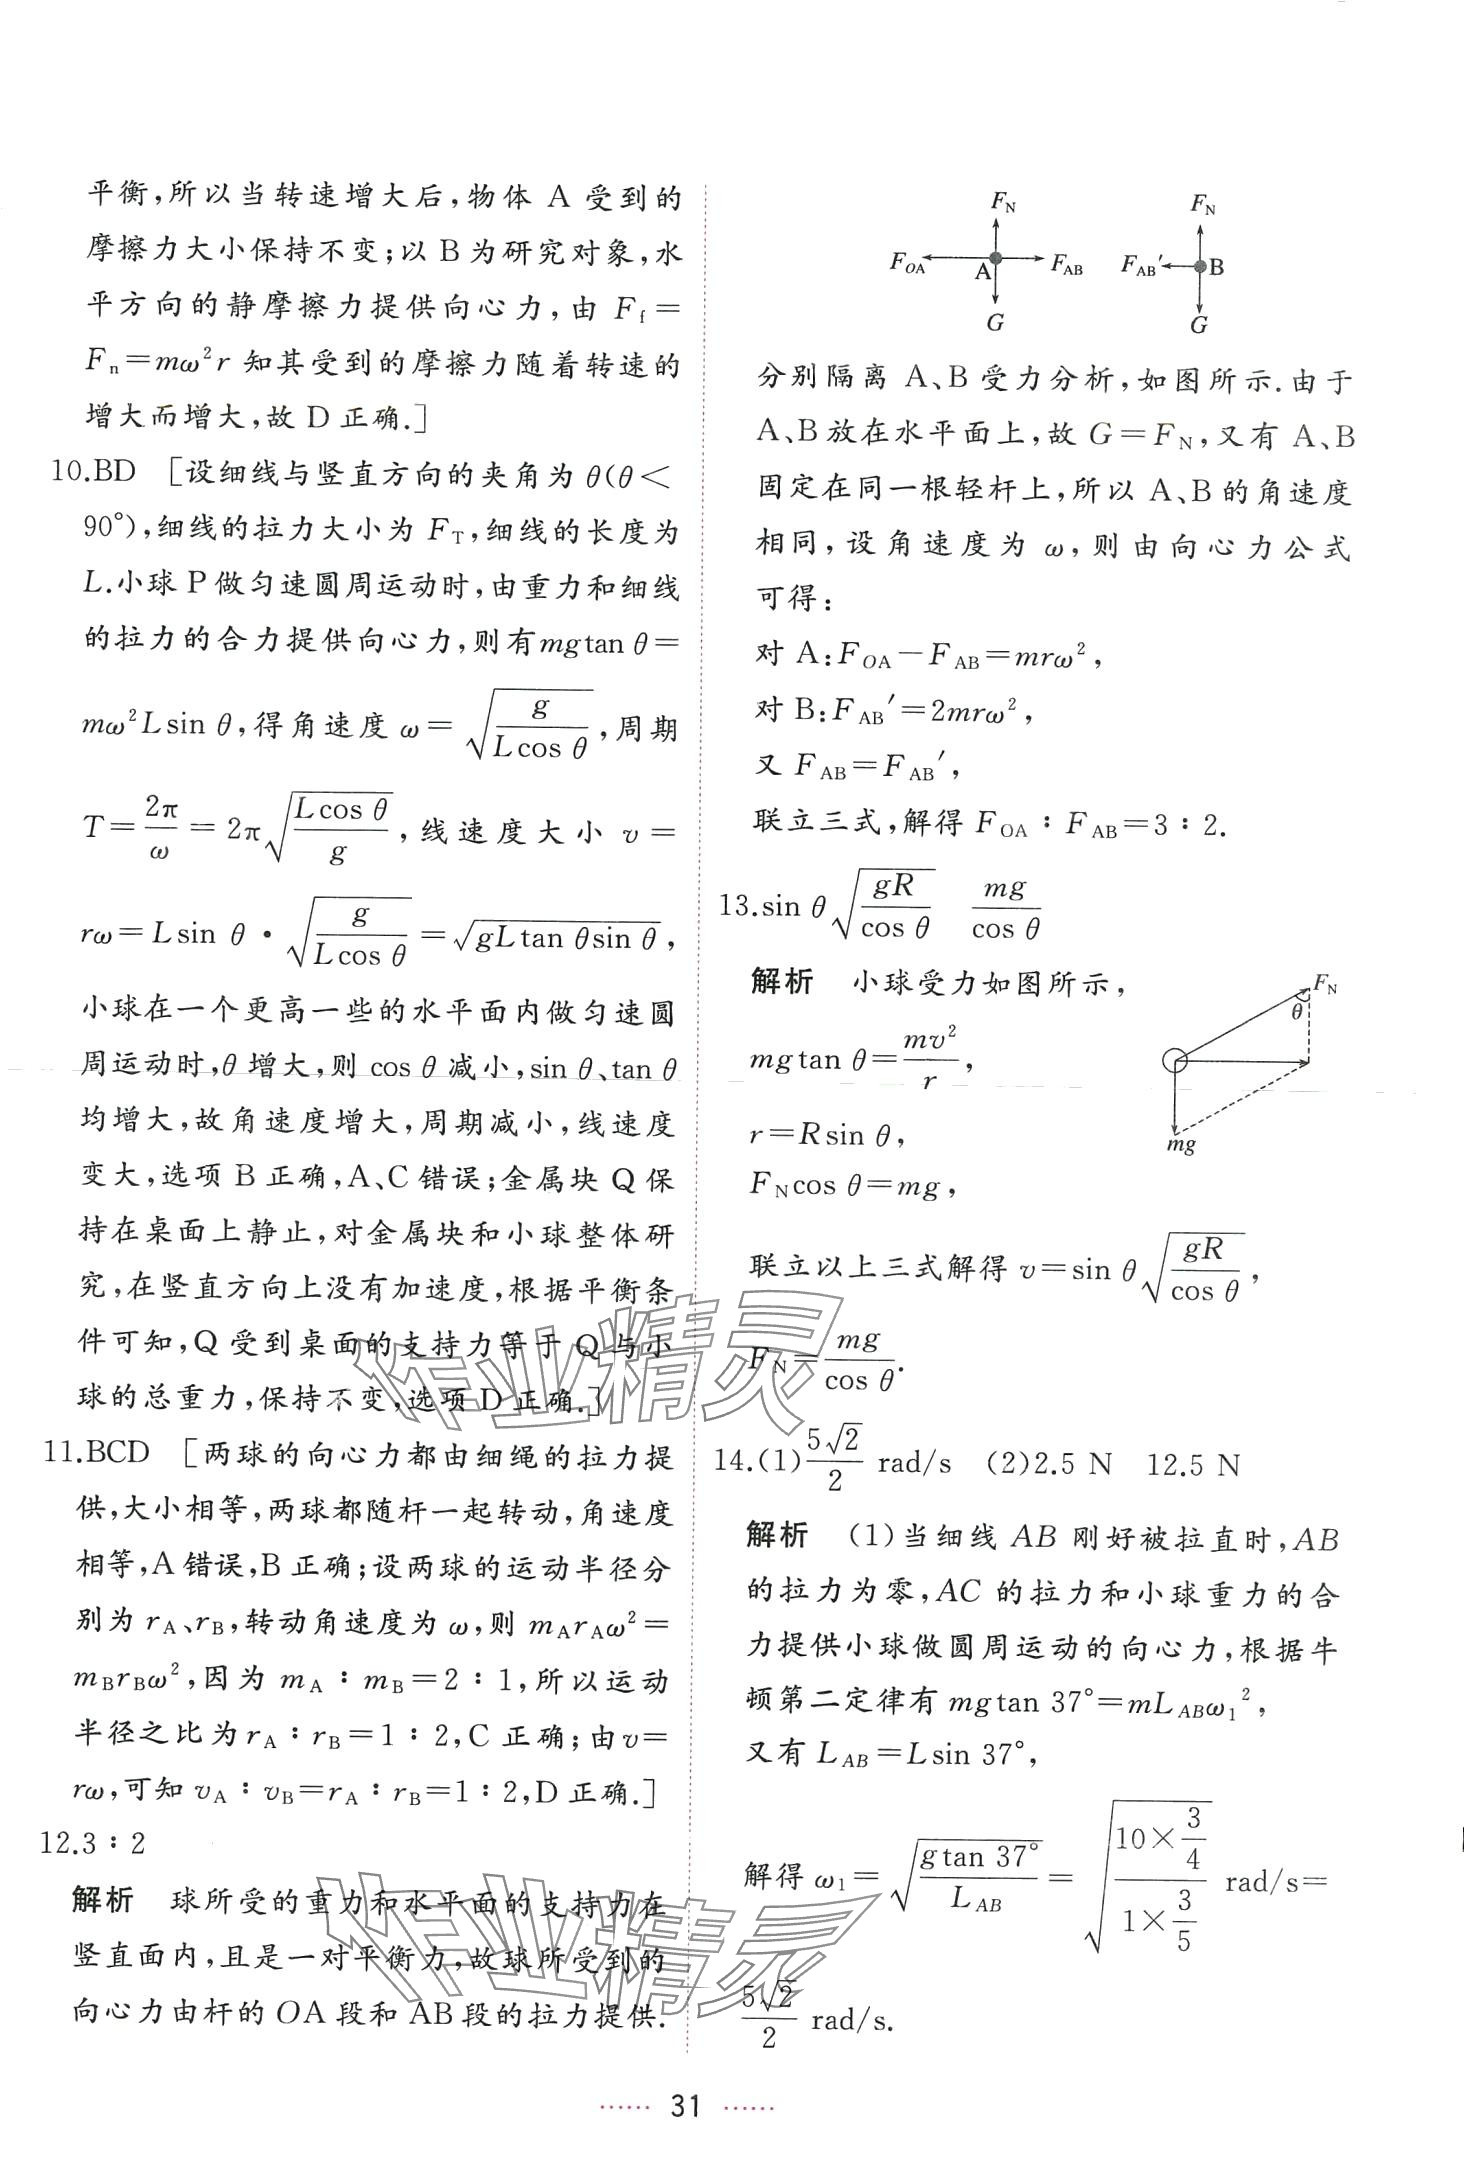 平衡,所以当转速增大后,物体 A 受到的
摩擦力大小保持不变;以 B 为研究对象,水
平方向的静摩擦力提供向心力,由 F_f=
F_n=mω²r 知其受到的摩擦力随着转速的
增大而增大,故 D 正确.]
10.BD [设细线与竖直方向的夹角为 θ(θ<
90°),细线的拉力大小为 F_T,细线的长度为
L.小球 P 做匀速圆周运动时,由重力和细线
的拉力的合力提供向心力,则有mgtan θ=
mω²Lsin θ,得角速度 ω=√(g/(Lcos θ)),周期
T=2π/ω=2π√(Lcos θ/g),线速度大小 v=
rω=Lsin θ·√(g/(Lcos θ))=√(gLtan θsin θ),
小球在一个更高一些的水平面内做匀速圆
周运动时,θ增大,则 cos θ减小,sin θ、tan θ
均增大,故角速度增大,周期减小,线速度
变大,选项 B 正确,A、C 错误;金属块 Q 保
持在桌面上静止,对金属块和小球整体研
究,在竖直方向上没有加速度,根据平衡条
件可知,Q 受到桌面的支持力等于 Q 与小
球的总重力,保持不变,选项 D 正确.]
11.BCD [两球的向心力都由细绳的拉力提
供,大小相等,两球都随杆一起转动,角速度
相等,A 错误,B 正确;设两球的运动半径分
别为 r_A、r_B,转动角速度为 ω,则 m_Ar_Aω²=
m_Br_Bω²,因为 m_A∶m_B=2∶1,所以运动
半径之比为 r_A∶r_B=1∶2,C 正确;由 v=
rω,可知 v_A∶v_B=r_A∶r_B=1∶2,D 正确.]
12.3∶2
解析 球所受的重力和水平面的支持力在
竖直面内,且是一对平衡力,故球所受到的
向心力由杆的 OA 段和 AB 段的拉力提供.
F_N
F_OA
A
F_AB
G
F_N
F_AB′
B
G
分别隔离 A、B 受力分析,如图所示.由于
A、B 放在水平面上,故 G=F_N,又有 A、B
固定在同一根轻杆上,所以 A、B 的角速度
相同,设角速度为 ω,则由向心力公式
可得:
对 A:F_OA-F_AB=mrω²,
对 B:F_AB′=2mrω²,
又 F_AB=F_AB′,
联立三式,解得 F_OA∶F_AB=3∶2.
13.sin θ√(gR/cos θ) mg/cos θ
解析 小球受力如图所示,
mgtan θ=mv²/r,
r=Rsin θ,
F_Ncos θ=mg,
F_N
θ
mg
联立以上三式解得 v=sin θ√(gR/cos θ),
F_N=mg/cos θ.
14.(1)5√2/2 rad/s (2)2.5 N 12.5 N
解析 (1)当细线 AB 刚好被拉直时,AB
的拉力为零,AC 的拉力和小球重力的合
力提供小球做圆周运动的向心力,根据牛
顿第二定律有 mgtan 37°=mL_ABω₁²,
又有 L_AB=Lsin 37°,
解得 ω₁=√(gtan 37°/L_AB)=√((10×3/4)/(1×3/5)) rad/s=
5√2/2 rad/s.
作业精灵
作业精灵
…… 31 ……